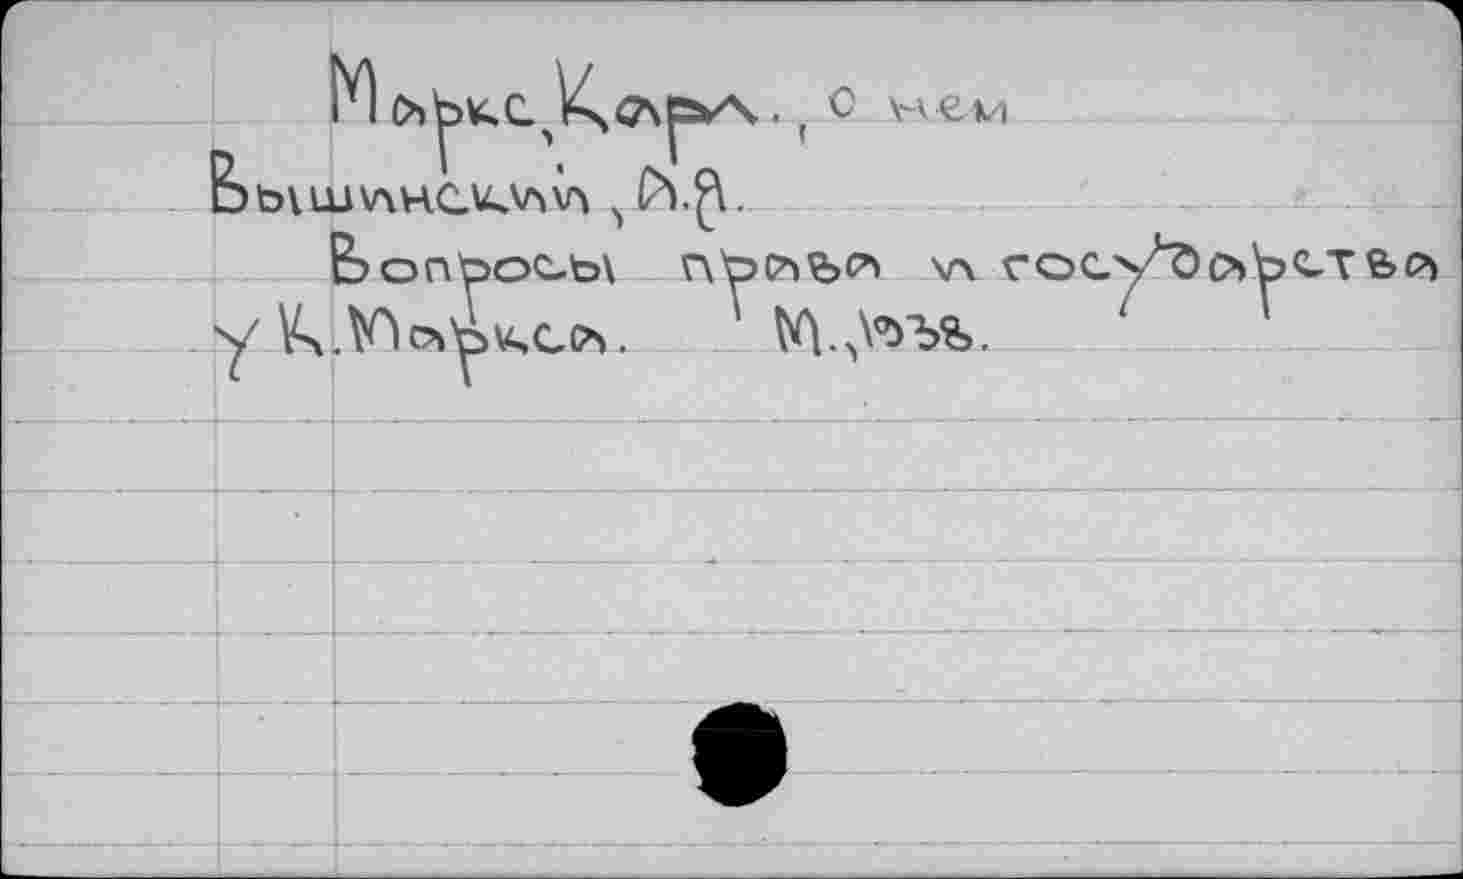 Маркс, Карл., о нем
Вышинский, А.Я.
Вопросы права и государства
у К.Маркса. М., 1938.